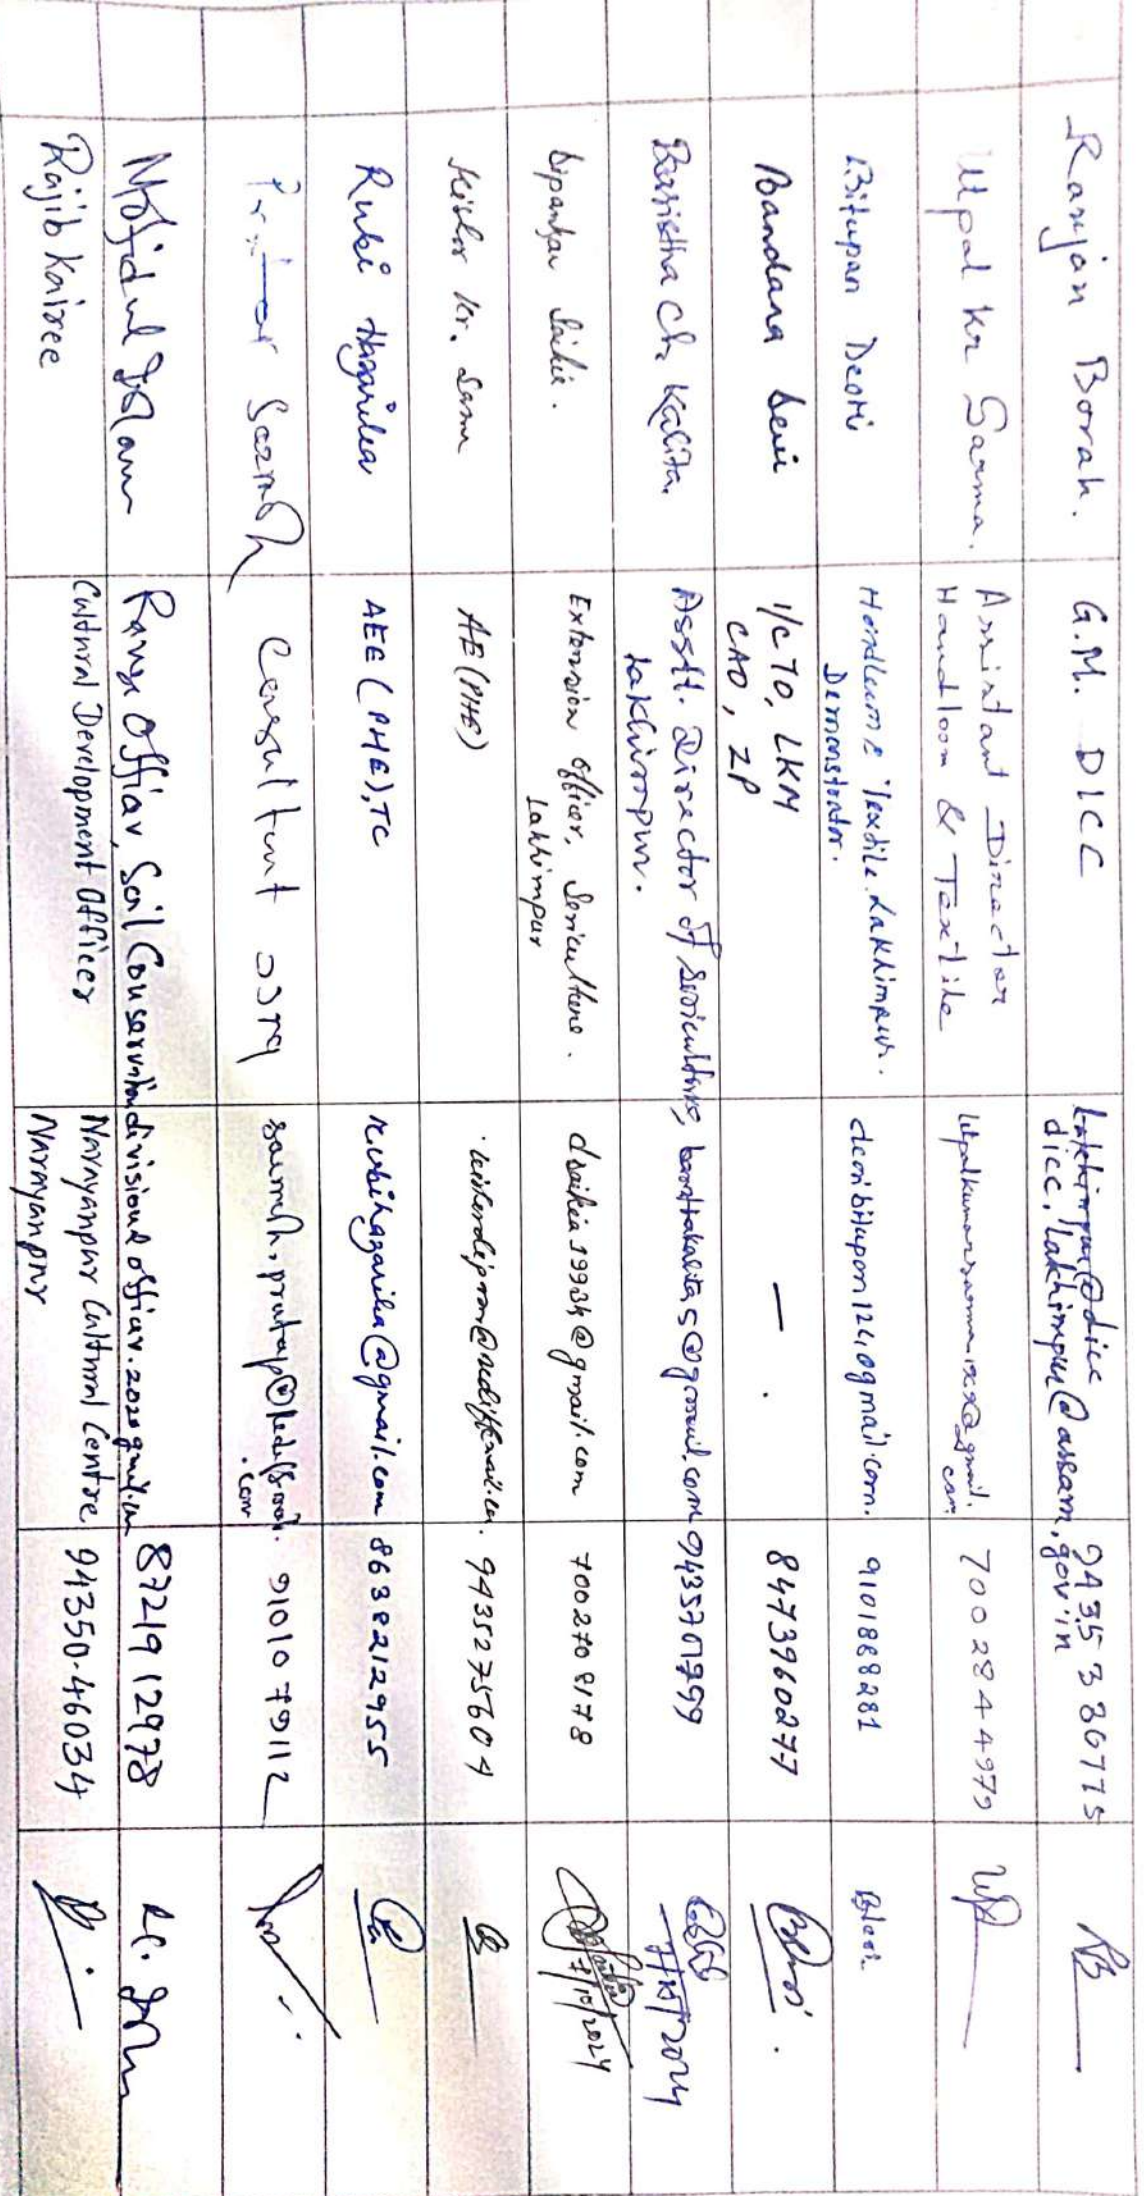 Ranjan Borah.
G.M. DICC
Lakhimpur@dicc
dicc.lakhimpur@assam.gov.in
94353 86775
RB
Utpal Kr Sarma.
Assistant Director
Handloom & Textile
utpalkumarsarma @gmail.
com
7002844979
Bitupan Deori
Handloom & Textile. Lakhimpur.
Demonstrator.
9101888281
Bandana Devi
I/C TO, LKM
CAO, ZP
— .
8473960277
Basistha Ch. Kalita.
Asstt. Director of Sericulture,
Lakhimpur.
9435701799
7/10/2024
Dipankar Saikia.
Extension Officer, Sericulture.
Lakhimpur
dsaikia1993h@gmail.com
7002708178
7/10/2024
Kishor Kr.
AE (PHE)
9435275604
Rubi Hazarika
AEE (PHE), TC
rubihazarika@gmail.com
8638212955
Consultant
.com
9101079112
Mofidul Islam
Range Officer, Soil Conservation
divisional officer.2020gmail.com
8721912978
Rajib Kairee
Cultural Development Officer
Narayanpur Cultural Centre
Narayanpur
94350-46034